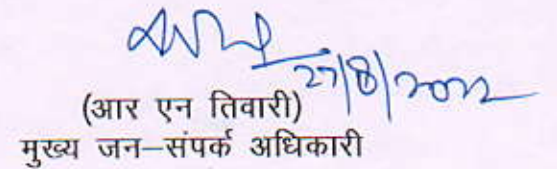 27/8/2022
(आर एन तिवारी)
मुख्य जन–संपर्क अधिकारी